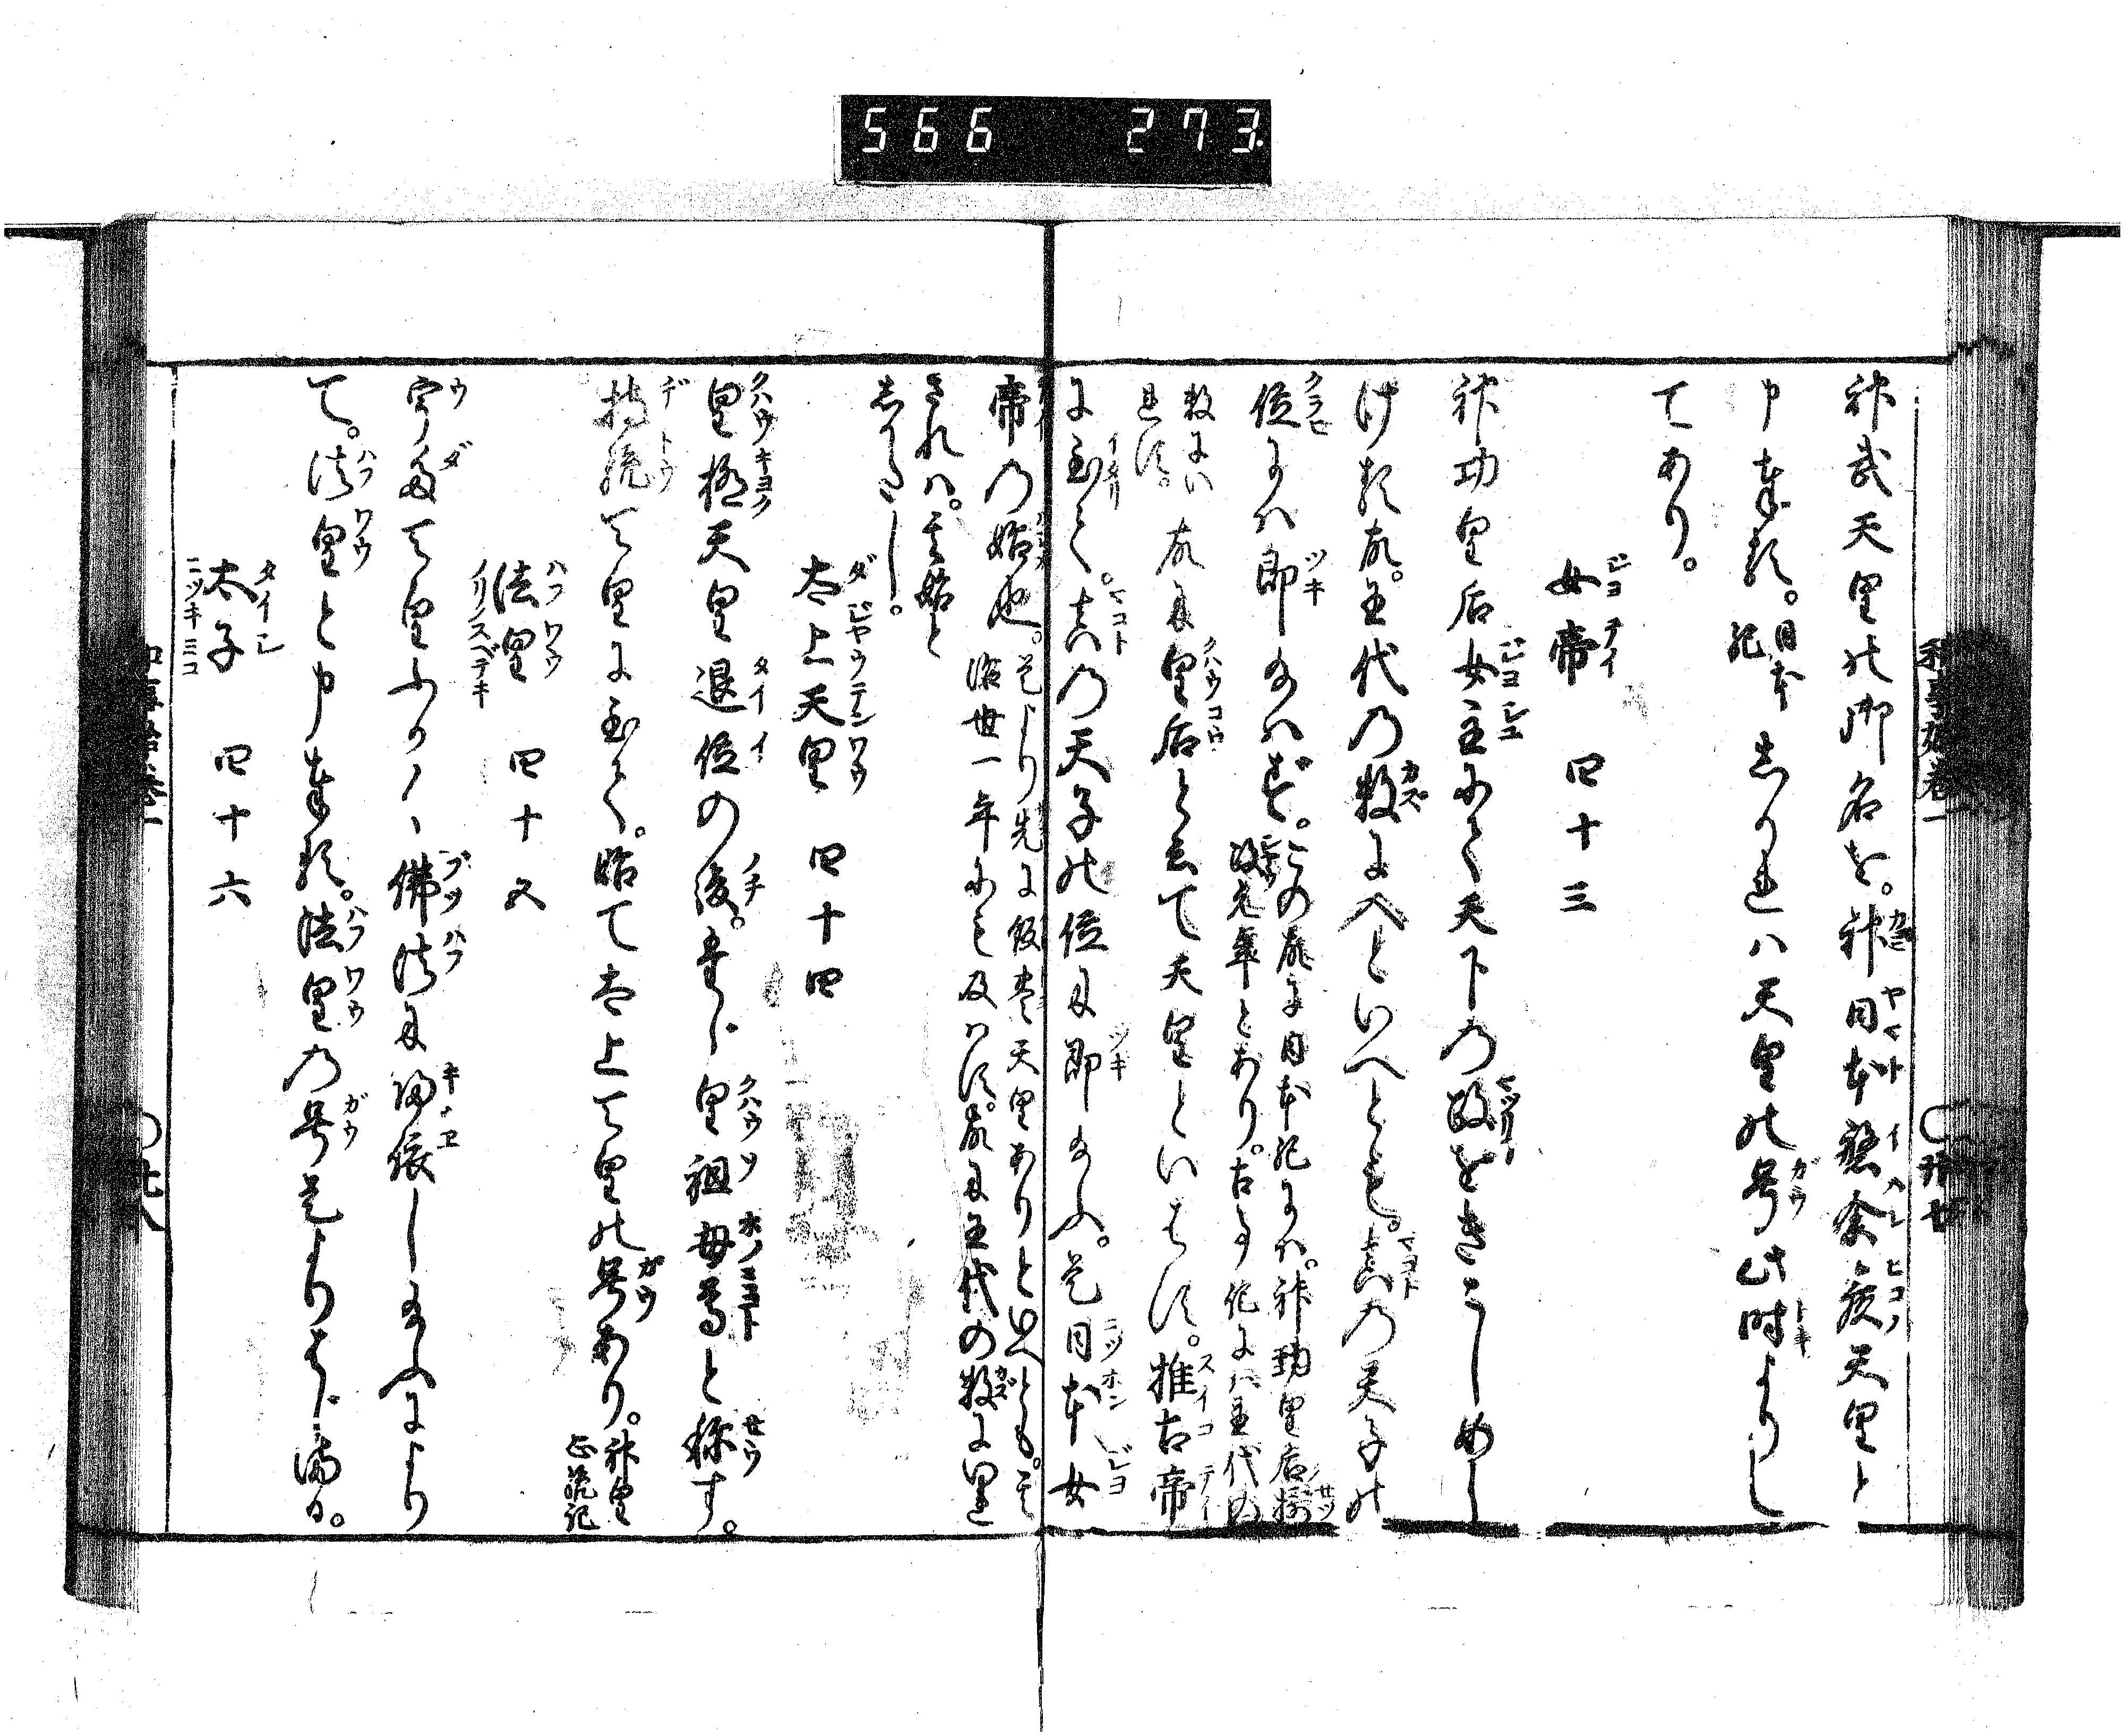 566 273.
神武天皇の御名を。神日本磐余彦天皇と
申奉る。日本紀しかれハ天皇の号此時よりし
てあり。
女帝 四十三
神功皇后女主にて天下の政をきこしめし
け る故。王代の数に入といへとも。真の天子の
位にハ即給ハず。この故に日本紀にハ。神功皇后摂政元年とあり。古事記にハ王代の
数にいれず。故に皇后と云て天皇といはず。推古帝
に至て。真の天子の位に即給ふ。是日本女
帝の始也。是より先に飯豊天皇ありといへとも。其治世一年にも及ハず。故に王代の数に里
されハ。其始としかたし。
太上天皇 四十四
皇極天皇退位の後。皇祖母尊と称す。
持統天皇に至て。始て太上天皇の号あり。神皇正統記
法皇 四十五
宇多天皇ふかく佛法に帰依し給ふにより
て。法皇と申奉る。法皇の号是よりはじまる。
太子 四十六